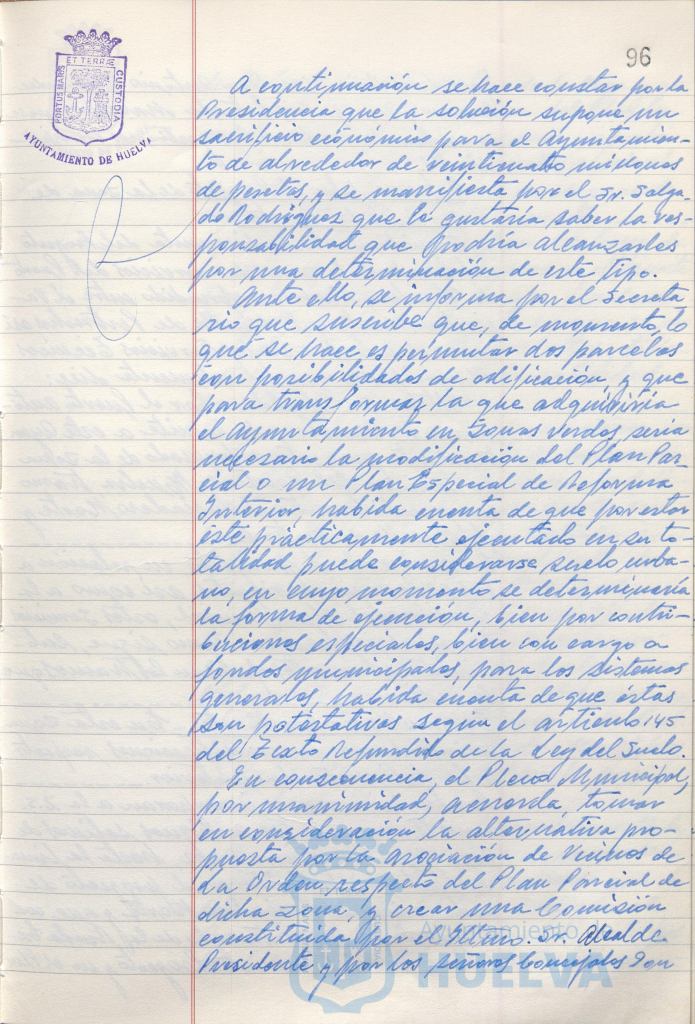 96
PORTUS MARIS ET TERRÆ CUSTODIA
AYUNTAMIENTO DE HUELVA
A continuación se hace constar por la
Presidencia que la solución supone un
sacrificio económico para el Ayuntamien-
to de alrededor de veinticuatro millones
de pesetas, y se manifiesta por el Sr. Salga-
do Rodríguez que le gustaría saber la res-
ponsabilidad que podría alcanzarles
por una determinación de este tipo.
Ante ello, se informa por el Secreta
rio que suscribe que, de momento, lo
que se hace es permutar dos parcelas
con posibilidades de edificación, y que
para transformar la que adquiriría
el Ayuntamiento en zonas verdes, sería
necesario la modificación del Plan Par-
cial o un Plan Especial de Reforma
Interior, habida cuenta de que por estar
éste prácticamente ejecutado en su to-
talidad puede considerarse suelo urba-
no, en cuyo momento se determinaría
la forma de ejecución, bien por contri-
buciones especiales, bien con cargo a
fondos municipales, para los sistemas
generales, habida cuenta de que éstas
son potestativas según el artículo 145
del Texto Refundido de la Ley del Suelo.
En consecuencia, el Pleno Municipal,
por unanimidad, acuerda, tomar
en consideración la alternativa pro-
puesta por la Asociación de Vecinos de
La Orden, respecto del Plan Parcial de
dicha zona, y crear una Comisión
constituida por el Iltmo. Sr. Alcalde
Presidente y por los señores Concejales Don
Ayuntamiento de
HUELVA